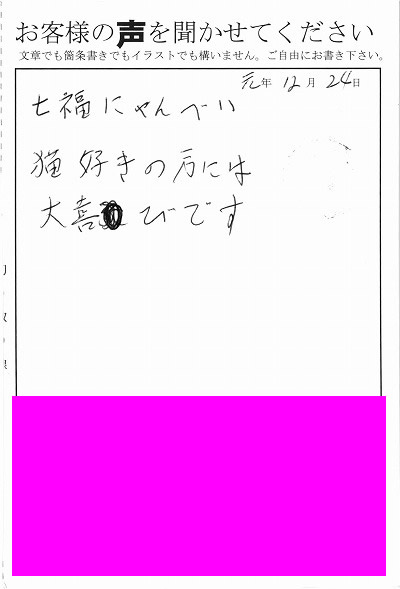 お客様の声を聞かせてください
文章でも箇条書きでもイラストでも構いません。ご自由にお書き下さい。
元年 12月 24日
七福にゃんべい
猫好きの方には
大喜びです